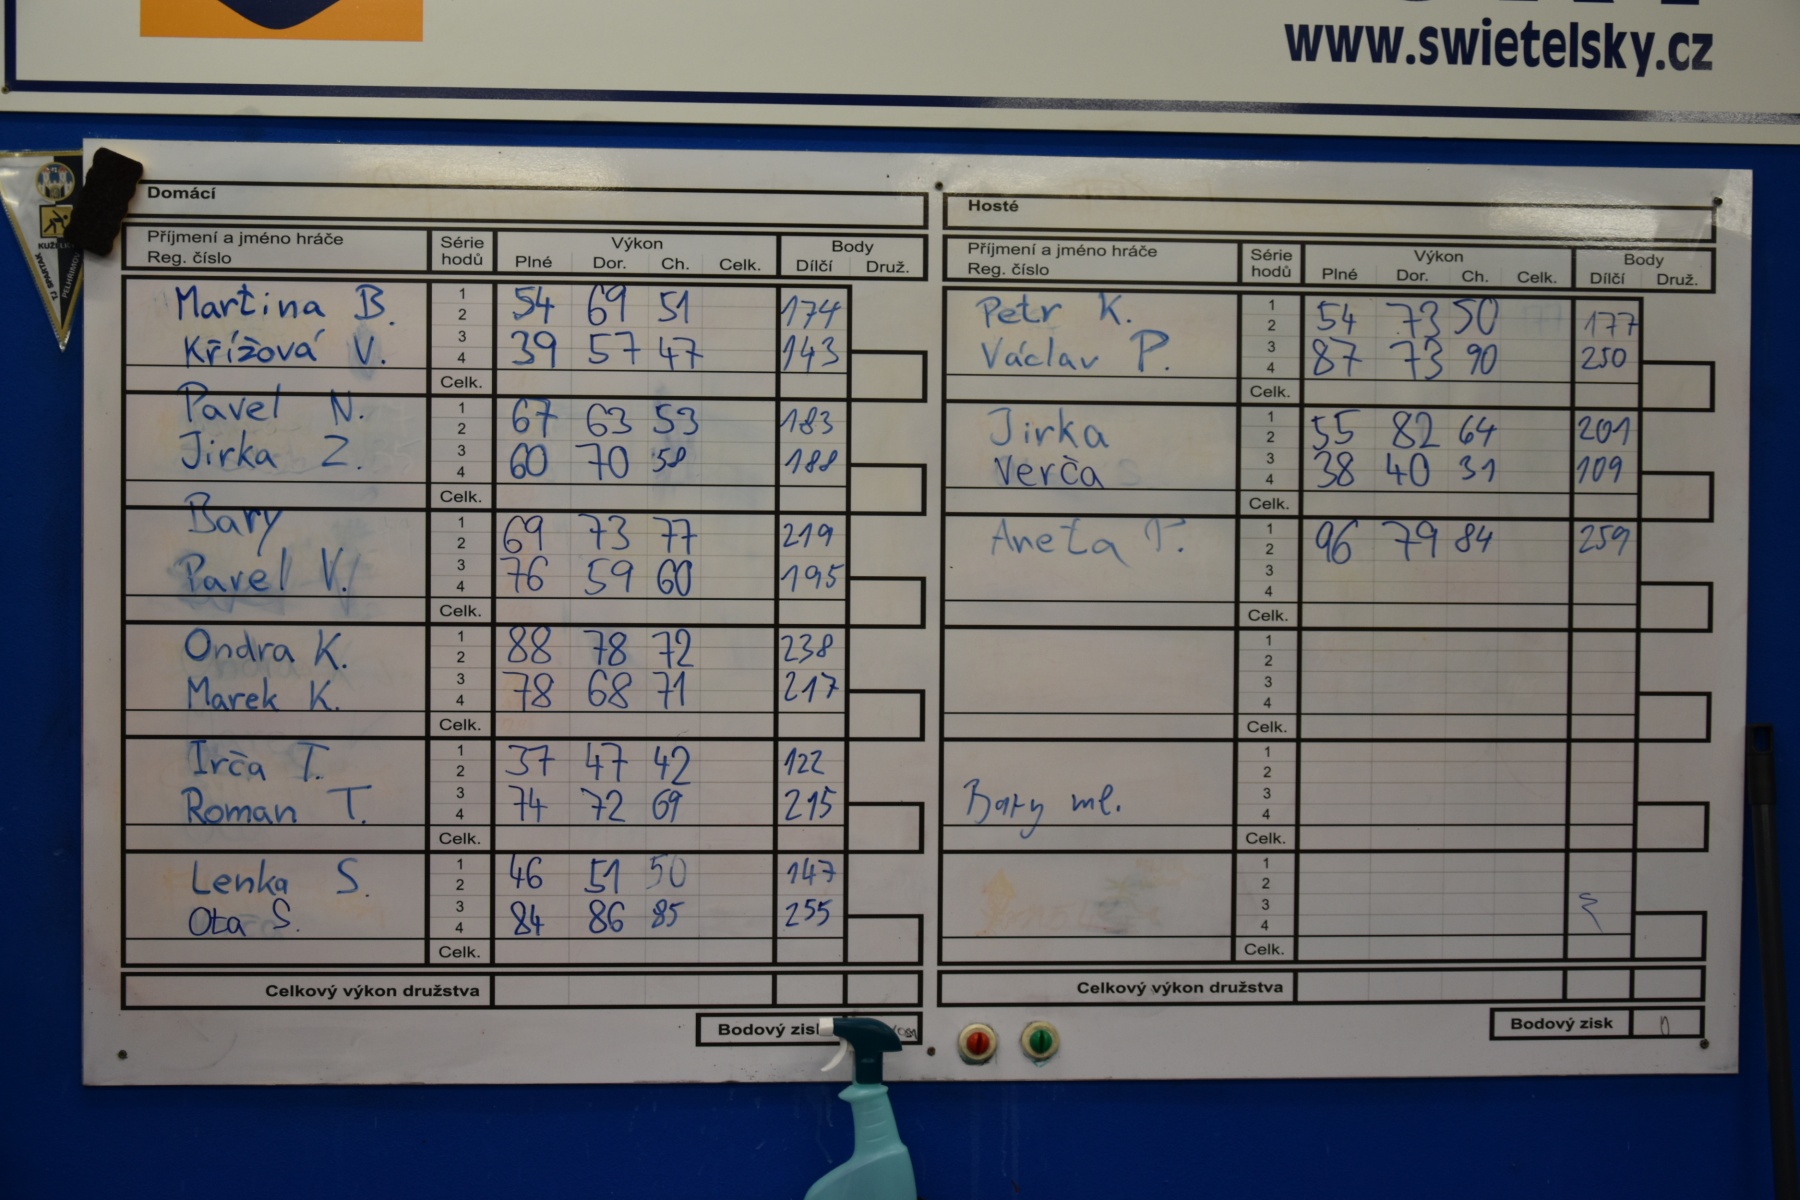 www.swietelsky.cz
KUŽELKY
TJ SPARTAK
PELHŘIMOV
Domácí
Příjmení a jméno hráče Série Výkon Body
Reg. číslo hodů Plné Dor. Ch. Celk. Dílčí Druž.
1
Martina B. 2 54 69 51 174
3
Křížová V. 4 39 57 47 143
Celk.
1
Pavel N. 2 67 63 53 183
3
Jirka Z. 4 60 70 58 188
Celk.
1
Bary 2 69 73 77 219
3
Pavel V. 4 76 59 60 195
Celk.
1
Ondra K. 2 88 78 72 238
3
Marek K. 4 78 68 71 217
Celk.
1
Irča T. 2 37 47 42 122
3
Roman T. 4 74 72 69 215
Celk.
1
Lenka S. 2 46 51 50 147
3
Ota S. 4 84 86 85 255
Celk.
Celkový výkon družstva
Bodový zisk
Hosté
Příjmení a jméno hráče Série Výkon Body
Reg. číslo hodů Plné Dor. Ch. Celk. Dílčí Druž.
1
Petr K. 2 54 73 50 177
3
Václav P. 4 87 73 90 250
Celk.
1
Jirka 2 55 82 64 201
3
Verča 4 38 40 31 109
Celk.
1
Aneta T. 2 96 79 84 259
3
4
Celk.
1
2
3
4
Celk.
1
2
3
Bary ml. 4
Celk.
1
2
3
4
Celk.
Celkový výkon družstva
Bodový zisk